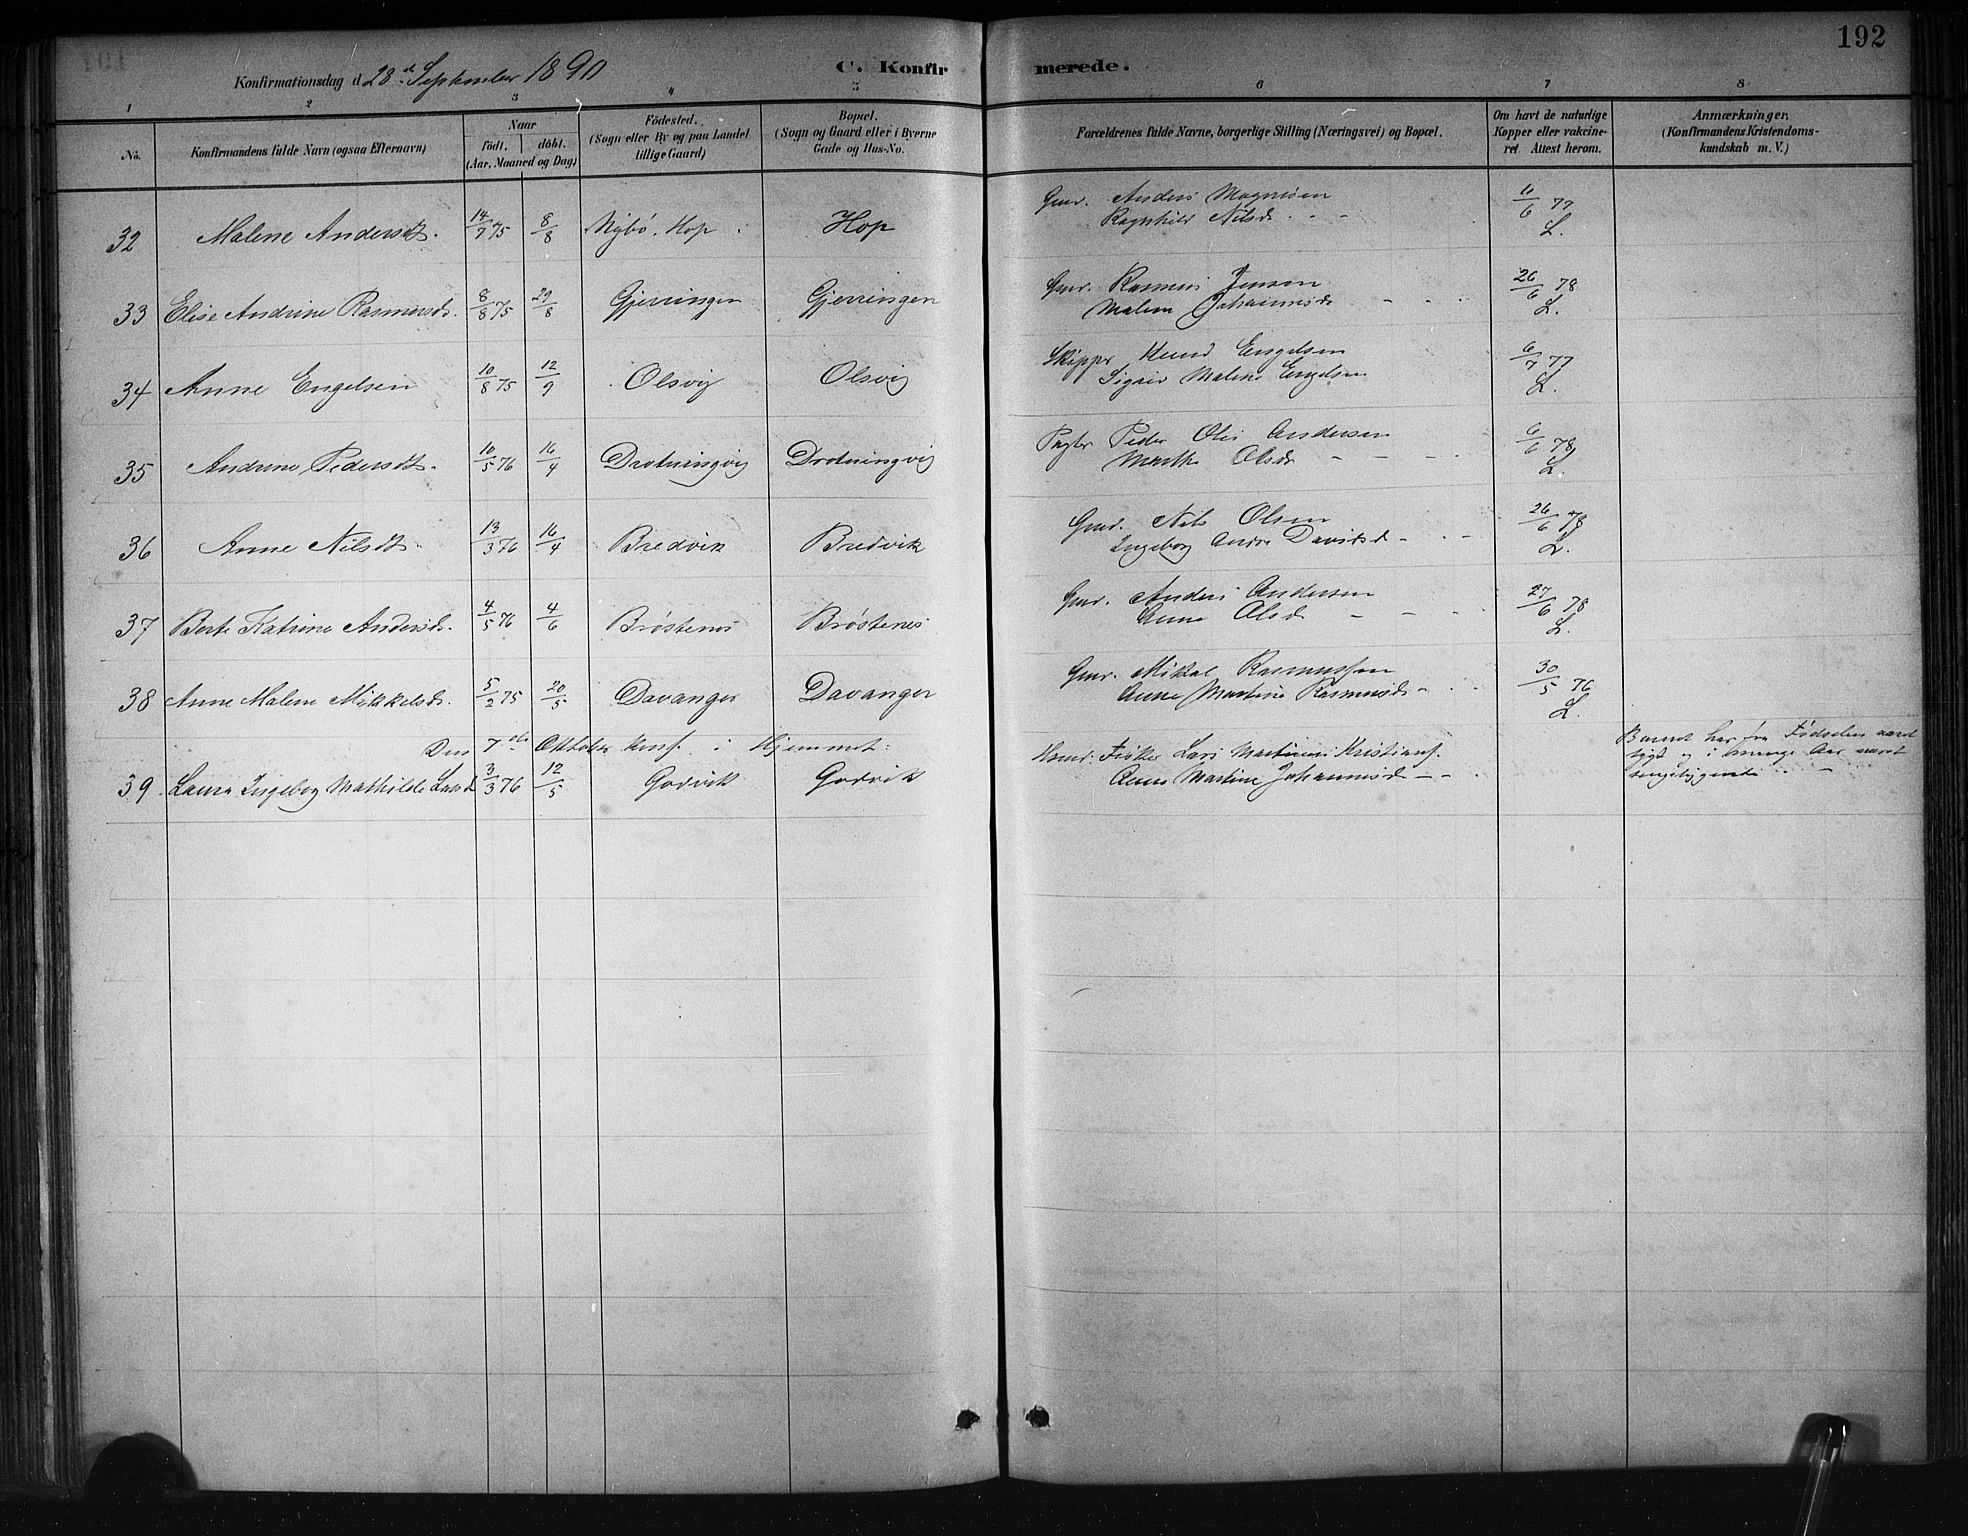 192
Konfirmationsdag d. 28de September 1890
C. Konfirmerede.
1 2 3 4 5 6 7 8
No.
Konfirmandens fulde Navn (ogsaa Efternavn)
Naar
födt. döbt.
(Aar, Maaned og Dag)
Födested.
(Sogn eller By og paa Landet
tillige Gaard)
Bopæl.
(Sogn og Gaard eller i Byerne
Gade og Hus-No.
Forældrenes fulde Navne, borgerlige Stilling (Næringsvei) og Bopæl.
Om havt de naturlige
Kopper eller vakcine-
ret. Attest herom.
Anmærkninger.
(Konfirmandens Kristendoms-
kundskab m. V.)
32 Malene Andersdt. 14/7 75 8/8 Nybö. Hop Hop Gmd. Anders Magnesen 11/6 77
Ragnhild Nilsd. L.
33 Elise Andrine Rasmusd. 8/8 75 29/8 Gjerringen Gjerringen Gmd. Rasmus Jensen 26/6 78
Malene Johannesd. L.
34 Anne Engelsen 10/8 75 12/9 Olsvig Olsvig Skipper Knud Engelsen 6/7 77
Sigrid Malene Engelsen L.
35 Andrine Pedersdt. 10/5 76 16/4 Drotningvig Drotningvig Peder Olai Andersen 6/6 78
Marthe Olsd. L.
36 Anne Nilsdt. 13/3 76 16/4 Bredvik Bredvik Gmd. Nils Olsen 26/6 78
Ingeborg Andr. Davidsd. L.
37 Berte Katrine Andersd. 4/5 76 4/6 Bröstenes Bröstenes Gmd. Anders Andersen 27/6 78
Anne Olsd. L.
38 Anne Malene Mikkelsd. 5/2 75 20/5 Davanger Davanger Gmd. Mikal Rasmussen 30/5 76
Anne Martine Rasmusd. L.
Den 7de Oktober Konf. i Hjemmet:
39 Laura Ingeborg Mathilde Larsd. 3/3 76 12/5 Godvik Godvik Husmd. Fisker Lars Martinus Kristians.
Anne Martine Johannesd.
Barnet har fra Födselen været
sygt og i mange Aar været
sengeliggende